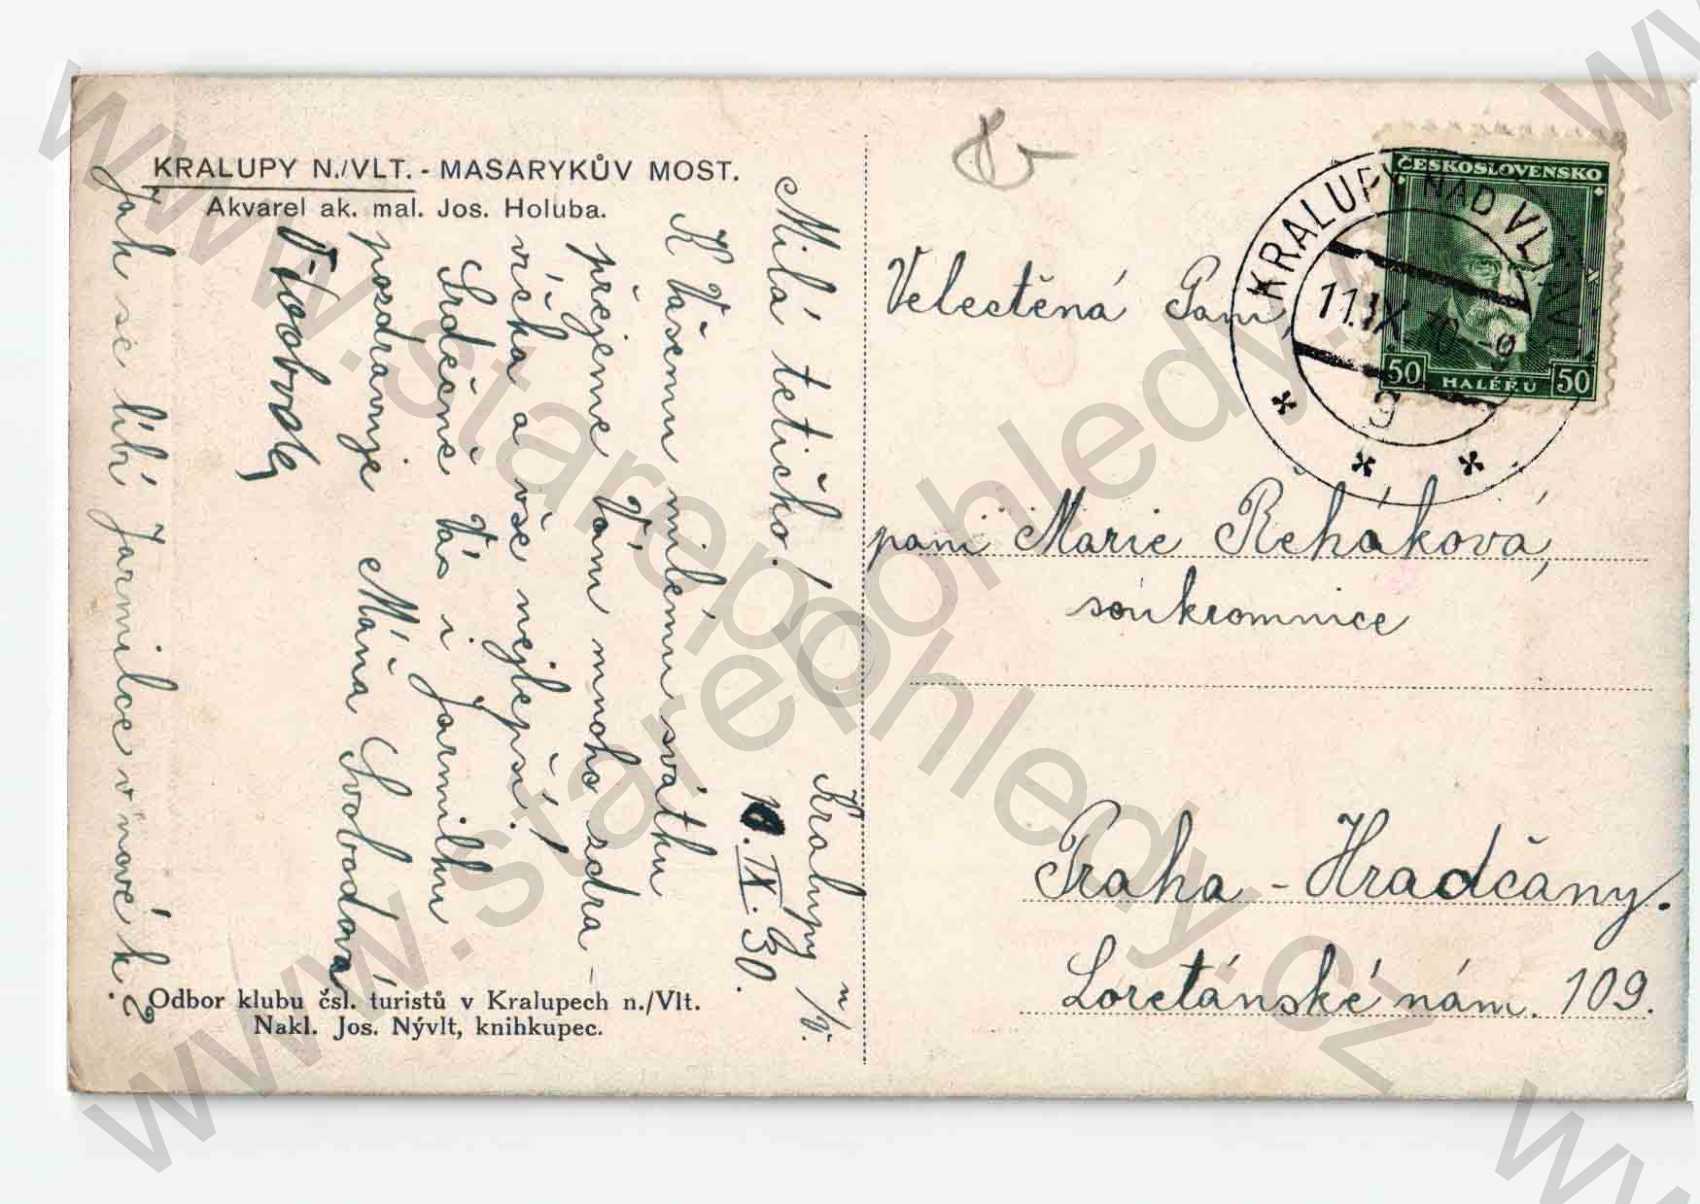 KRALUPY N./VLT. - MASARYKŮV MOST.
Akvarel ak. mal. Jos. Holuba.
Kralupy n/V.
10.IX.30.
Milá tetičko!
K Vašemu milému svátku
přejeme Vám mnoho zdra-
víčka a vše nejlepší!
Srdečně Vás i Jarmilku
pozdravuje Máňa Svobodová
Jak se líbí Jarmilce v nové k.?
Odbor klubu čsl. turistů v Kralupech n./Vlt.
Nakl. Jos. Nývlt, knihkupec.
ČESKOSLOVENSKO
50 HALÉŘŮ 50
KRALUPY NAD VLTAVOU
11.IX.30-9
g
Velectěná Paní,
paní Marie Řeháková,
soukromnice
Praha - Hradčany.
Loretánské nám. 109.
www.starepohledy.cz
www.starepohledy.cz